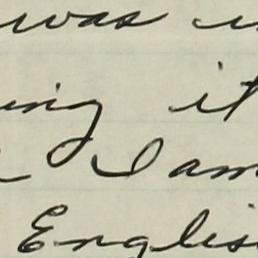 was
it
I am
Englis